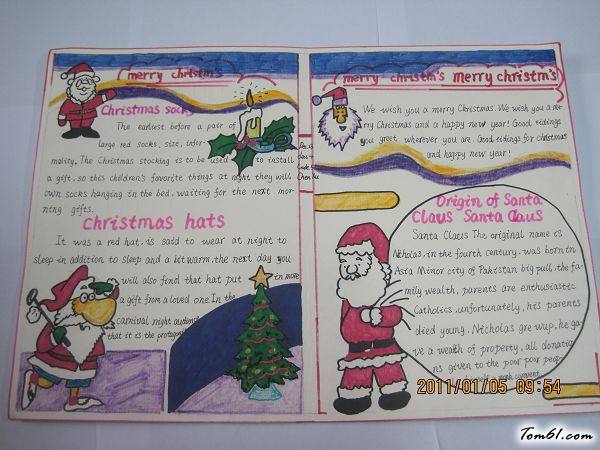 merry christm's
Christmas socks
The earliest before a pair of
large red socks, size, infor-
mality. The Christmas stocking is to be used to install
a gift, so this children's favorite things at night they will
own socks hanging in the bed, waiting for the next mor-
ning gifts.
Christmas hats
It was a red hat, is said to wear at night to
sleep in addition to sleep and a bit warm, the next day you
will also find that hat put in more
a gift from a loved one. In the
carnival night audience
that it is the protagoni
merry christm's merry christm's
We wish you a merry Christmas. We wish you a me-
rry Christmas and a happy new year! Good tidings
you greet wherever you are. Good tidings for christmas
and happy new year!
Origin of Santa
Claus Santa Claus
Santa Claus The original name is
Nicholas, in the fourth century, was born in
Asia Minor city of Pakistan big pull, the fa-
mily wealth, parents are enthusiastic
Catholics, unfortunately, his parents
died young. Nicholas grewup, he ga-
ve a wealth of property, all donatio
ns given to the poor poor peop
2011/01/05 09:54
Tom61.com